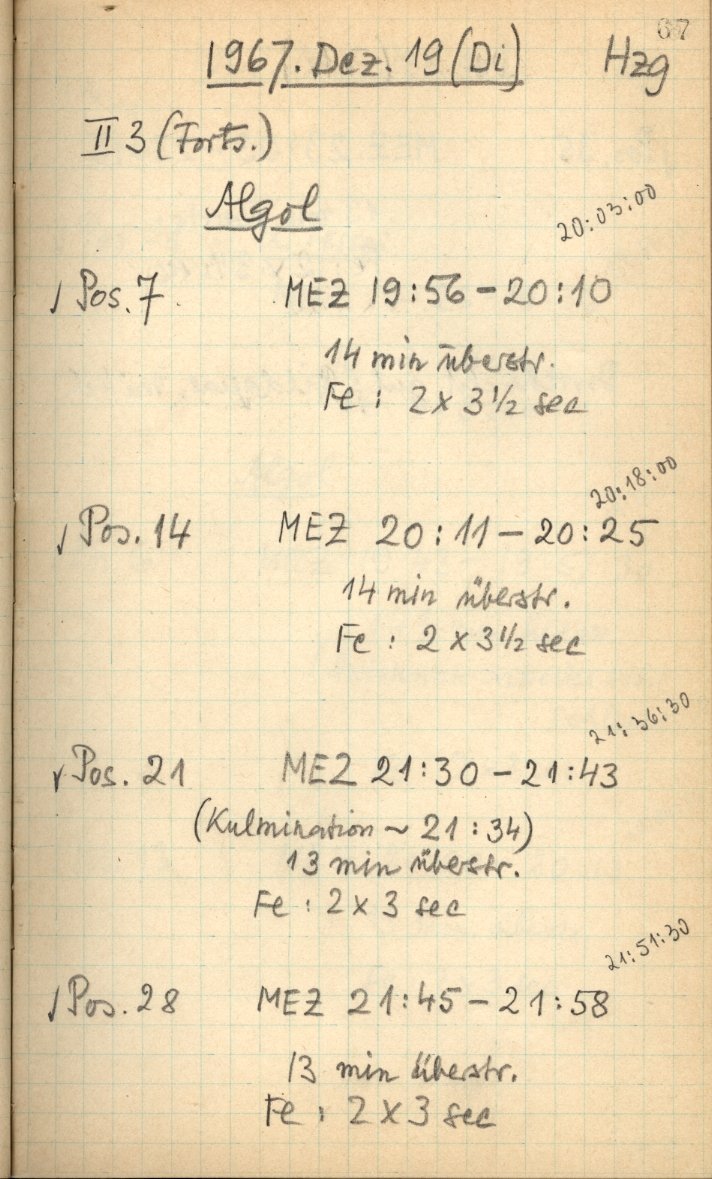 67
1967. Dez. 19 (Di) Hzg
II 3 (Forts.)
Algol
20:03:00
√ Pos. 7 MEZ 19:56 – 20:10
14 min überstr.
Fe : 2 x 3 1/2 sec
20:18:00
√ Pos. 14 MEZ 20:11 – 20:25
14 min überstr.
Fe : 2 x 3 1/2 sec
21:36:30
√ Pos. 21 MEZ 21:30 – 21:43
(Kulmination ~ 21:34)
13 min überstr.
Fe : 2 x 3 sec
21:51:30
√ Pos. 28 MEZ 21:45 – 21:58
13 min überstr.
Fe : 2 x 3 sec